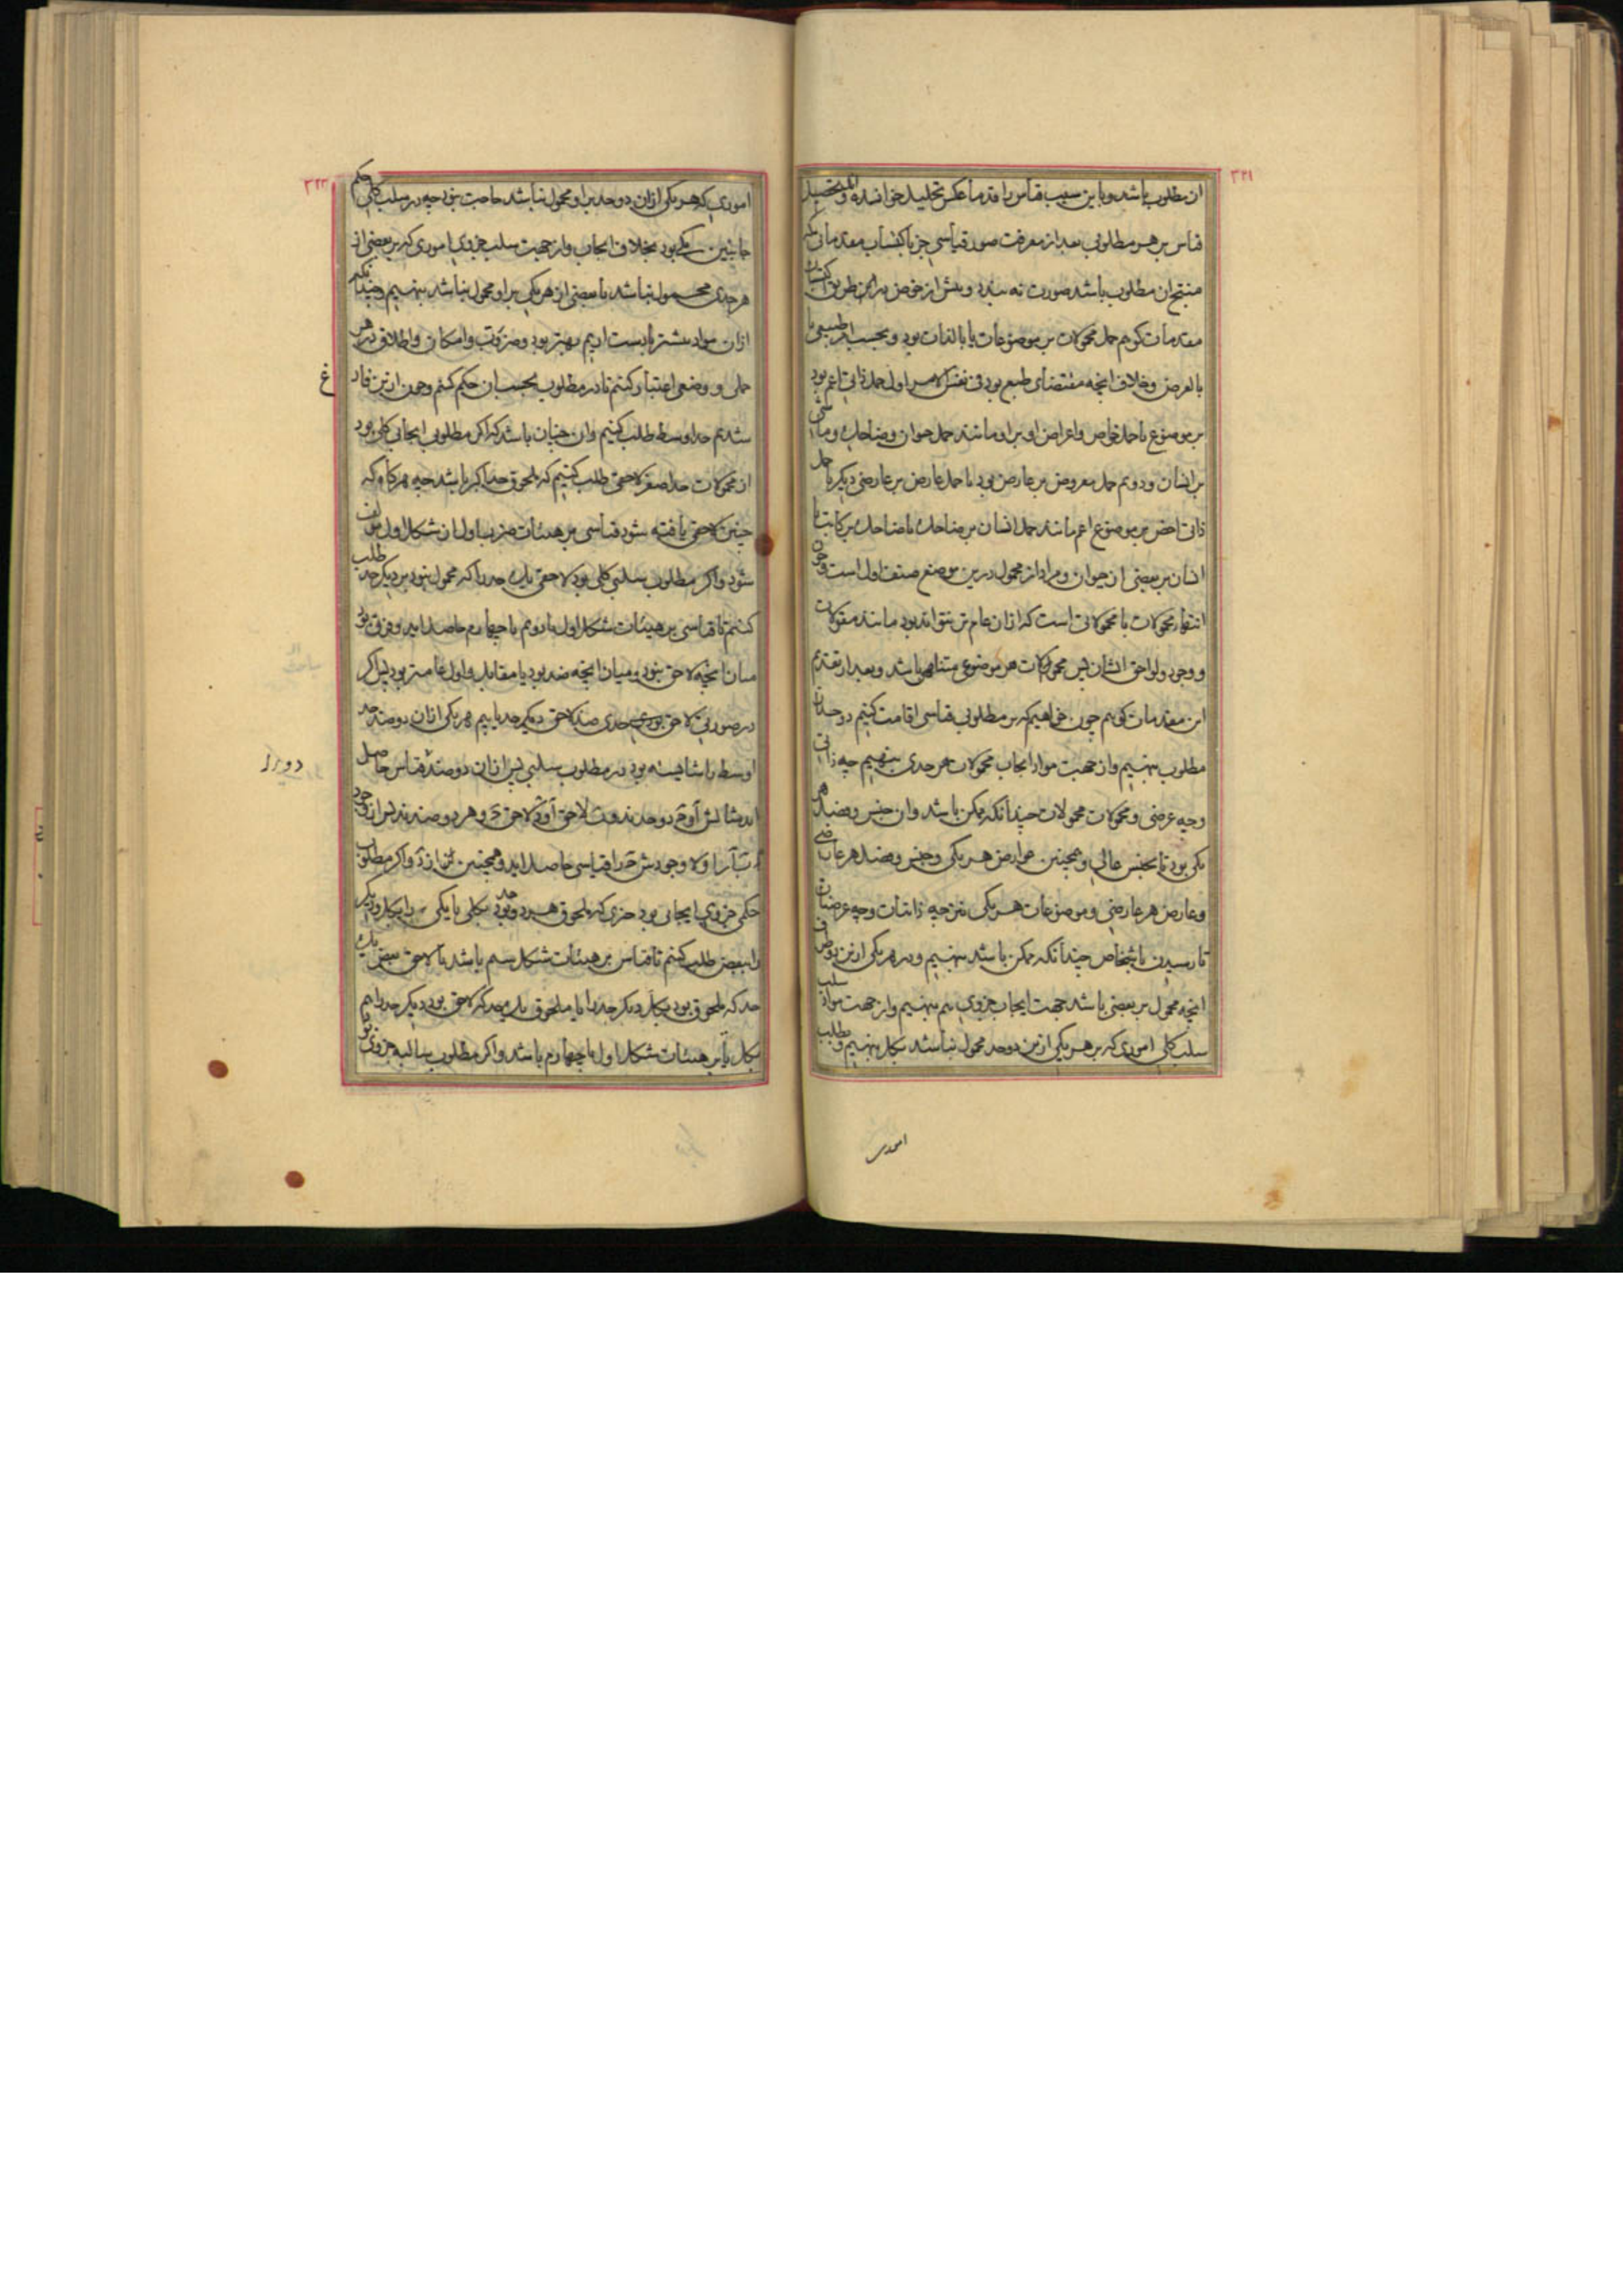 ٣٢١
ان مطلوب باشد و باین سبب قیاس را قدما عکس تحلیل خوانده اند و تحصیل
قیاس بر هر مطلوبی بعد از معرفت صورت قیاسی جز باکتساب مقدماتی که
منتج ان مطلوب باشد صورت نه بندد و پیش از خوض در این طریق اکتساب
مقدمات کوئیم حمل محمولات بر موضوعات یا بالذات بود و بحسب امر طبیعی یا
بالعرض و خلاف انچه مقتضای طبع بود فی نفس الامر اول حمل ذاتی اعم بود
بر موضوع یا حمل خواص و اعراض او بر او مانند حمل حیوان و ضاحک و ماشی
بر انسان و دویم حمل معروض بر عارض بود یا حمل عارض بر عارضی دیکر یا حمل
ذاتی اخص بر موضوع اعم مانند حمل انسان بر ضاحک یا ضاحک بر کاتب یا
انسان بر بعضی از حیوان و مراد از محمول درین موضع صنف اول است و چون
انتهاء محمولات با محمولاتی است که از ان عام تر نتواند بود مانند مقولات
و وجود و لواحق ایشان پس محمولات هر موضوعی متناهی باشد و بعد از تقدیم
این مقدمات کوئیم چون خواهیم که بر مطلوبی قیاسی اقامت کنیم دو حد ان
مطلوب بنهیم و از جهت مواد ایجاب محمولات هر حدی بنهیم چه ذاتی
و چه عرضی و محمولات محمولات چندانکه ممکن باشد و ان جنس و فصل هر
یکی بود تا بجنس عالی و همچنین عوارض هر یکی و جنس و فصل هر عارضی
و عارض هر عارضی و موضوعات هر یکی نیز چه ذاتیات و چه عرضیات
تا رسیدن باشخاص چندانکه ممکن باشد بنهیم و در هر یکی ازین اوصاف
انچه محمول بر بعضی باشد جهت ایجاب جزوی هم بنهیم و از جهت مواد سلب
سلب کلی اموری که بر هر یکی ازین دو حد محمول نباشد بکل بنهیم و طلب
٣٢٢
اموری که هر یکی از ان دو حد بر او محمول نباشد حاجت نبود چه در سلب کلی حکم
جانبین یکی بود بخلاف ایجاب و از جهت سلب جزوی اموری که بر بعضی از
هر حدی محمول نباشد یا بعضی از هر یکی بر او محمول نباشد بنهیم و چندانکه
ازان مواد بیشتر بادست اریم بهتر بود و ضرورت و امکان و اطلاق در هر
حملی و وضعی اعتبار کنیم تا در مطلوب بحسب ان حکم کنیم و چون ازین فارغ
شدیم حد اوسط طلب کنیم و ان چنان باشد که اکر مطلوبی ایجابی کلی بود
از محمولات حد اصغر لاحقی طلب کنیم که ملحوق حد اکبر باشد چه هرکاه که
چنین لاحقی یافته شود قیاسی بر هیئات ضرب اول از شکل اول
شود و اکر مطلوب سلبی کلی بود لاحقی یک حد را که محمول نبود بر دیکر حد طلب
کنیم تا قیاسی بر هیئات شکل اول یا دویم یا چهارم حاصل اید و فرق بود
میان انچه لاحق نبود و میان انچه ضد بود یا مقابل و اول عامتر بود پس اکر
در صورتی لاحق حدی ضد لاحق دیکر حد یابیم هر یکی از ان دو ضد حد
اوسط را شایسته بود در مطلوب سلبی پس از ان دو ضد قیاس حاصل
حکمی جزوی ایجابی بود جزی که ملحوق هر دو حد بود بکلی یا یکی را بکل و دیکر
را ببعض طلب کنیم تا قیاس بر هیئات شکل سیم باشد یا لاحق بعض یک
حد که ملحوق بود بکل دیکر حد را یا ملحوق یک حد که لاحق بود دیکر حد را هم
بکل تا بر هیئات شکل اول یا چهارم باشد و اکر مطلوب سالبه جزوی بود